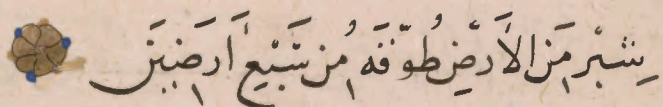 شِبْرٍ مِنَ الأَرْضِ طُوِّقَهُ مِنْ سَبْعِ أَرَضِينَ